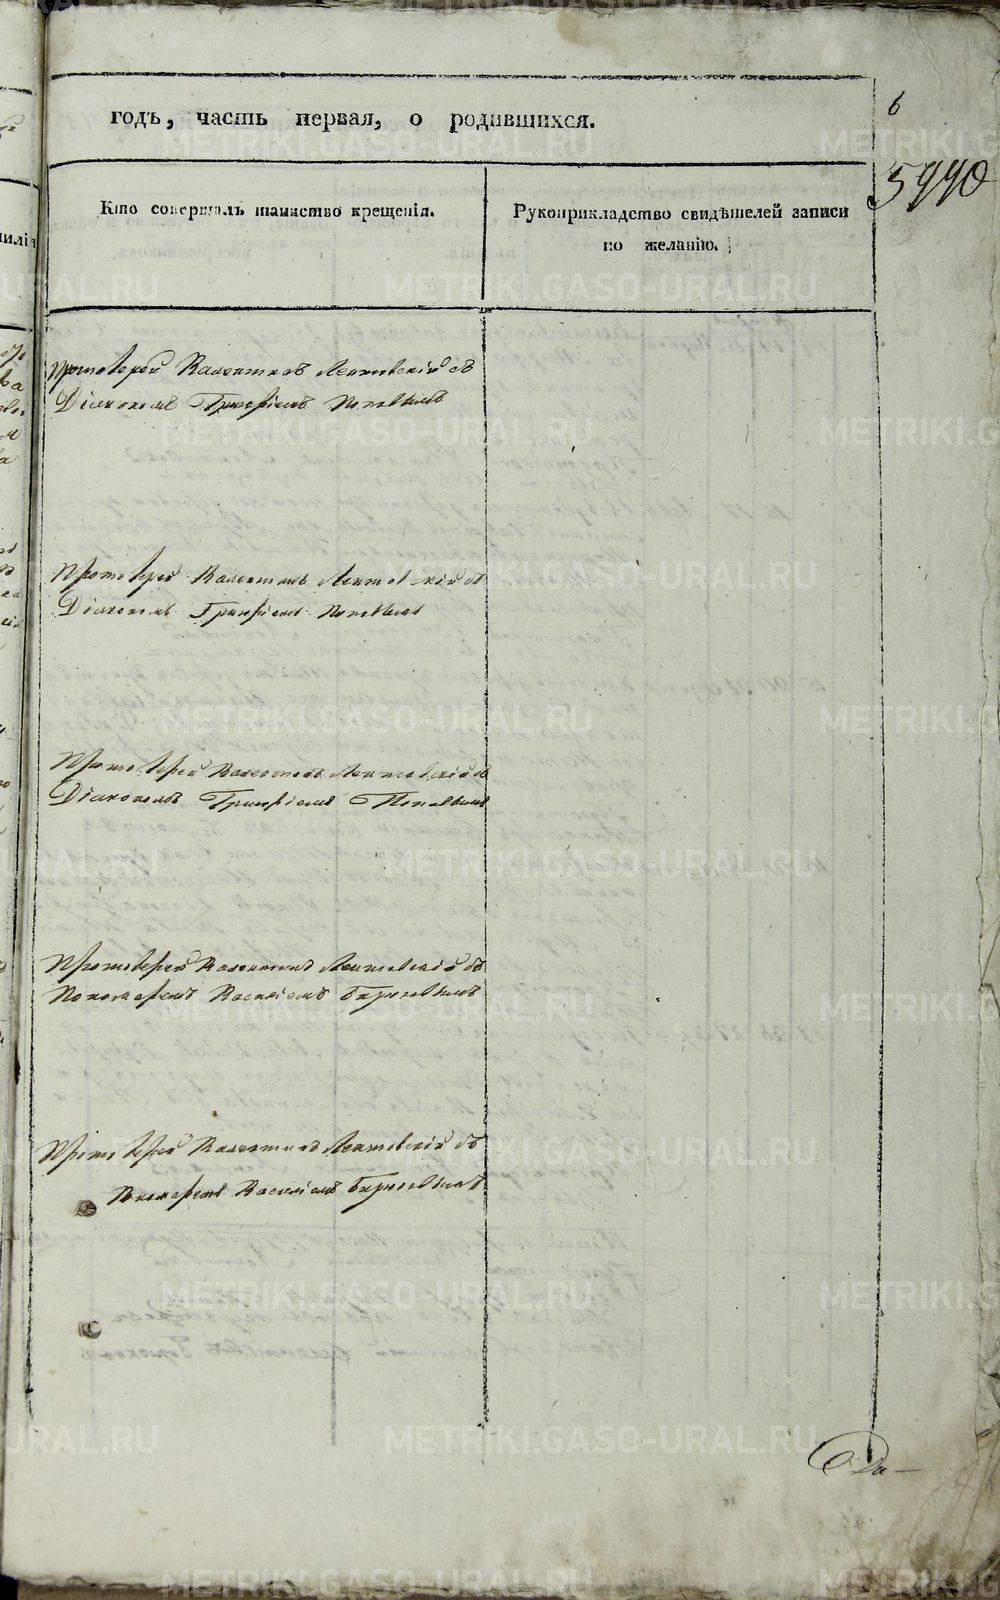 6
годъ, часть первая, о родившихся.
5990
Кто совершалъ таинство крещенія.
Рукоприкладство свидѣтелей записи
по желанію.
Протоіерей Валентинъ Лентовскій съ
Діакономъ Григоріемъ Поповымъ
Протоіерей Валентинъ Лентовскій съ
Діакономъ Григоріемъ Поповымъ
Протоіерей Валентинъ Лентовскій съ
Діакономъ Григоріемъ Поповымъ
Протоіерей Валентинъ Лентовскій съ
Пономаремъ Василіемъ Бирюковымъ
Протоіерей Валентинъ Лентовскій съ
Пономаремъ Василіемъ Бирюковымъ
METRIKI.GASO-URAL.RU